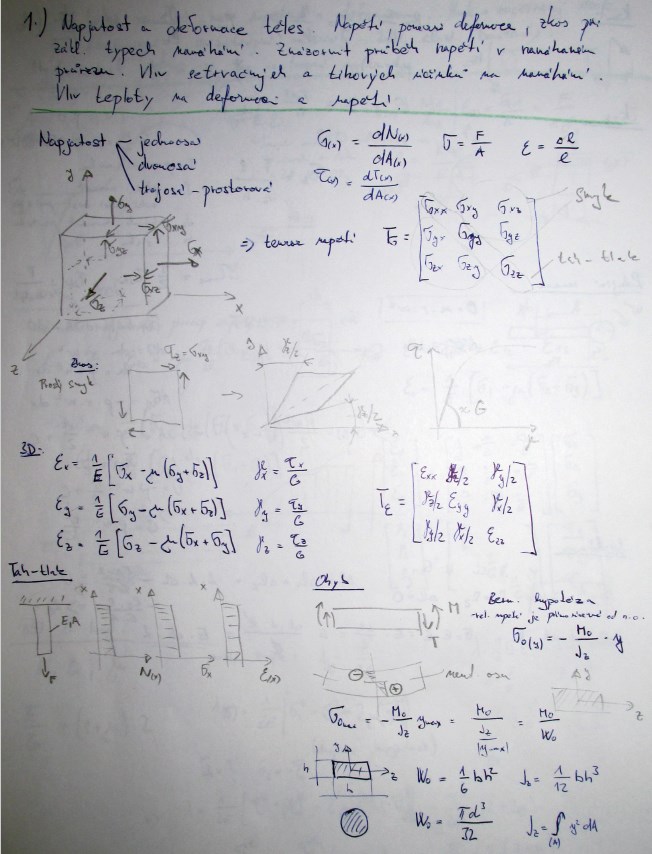 1.) Napjatost a deformace těles. Napětí, poměrná deformace, zkos při
zákl. typech namáhání. Znázornit průběh napětí v namáhaném
průřezu. Vliv setrvačných a tíhových účinků na namáhání.
Vliv teploty na deformaci a napětí.
Napjatost jednoosá
dvouosá
trojosá - prostorová
σ(x) = dN(x)/dA(x) σ = F/A ε = Δl/l
τ(x) = dT(x)/dA(x)
y σy σxy σx σyz σxz σz x z
=> tenzor napětí Tσ = [σxx σxy σxz
σyx σyy σyz
σzx σzy σzz]
smyk
tah-tlak
Zkos:
Prostý smyk
τz = σxy
→ y γz/2 γz/2
τ G γ
3D:
εx = 1/E [σx - μ(σy+σz)] γx = τx/G
εy = 1/E [σy - μ(σx+σz)] γy = τy/G
εz = 1/E [σz - μ(σx+σy)] γz = τz/G
Tε = [εxx γz/2 γy/2
γz/2 εyy γx/2
γy/2 γx/2 εzz]
Tah-tlak
x x x
E,A
F N(x) σx ε(x)
Ohyb
M
T
Bern. hypotéza
σo(y) = - Mo/Jz · y
neutr. osa
⊖ ⊕
y z
σomax = - Mo/Jz ymax = Mo/(Jz/|ymax|) = Mo/Wo
h y z b
Wo = 1/6 bh² Jz = 1/12 bh³
Wo = πd³/32 Jz = ∫(A) y² dA